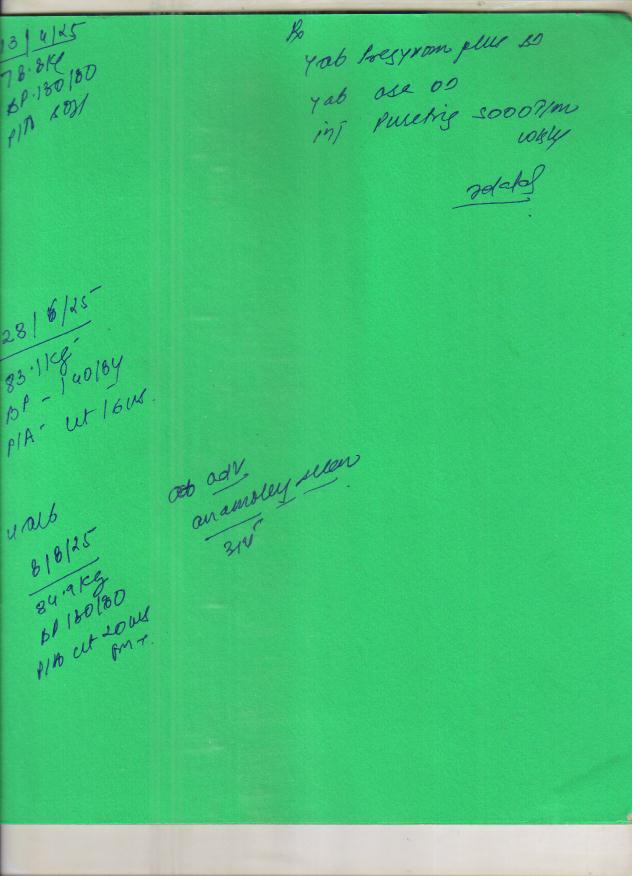 13/4/25
78.8Kg
BP.130/80
P/A soft
Rx
Tab Pregynom plus BD
Tab ase OD
inj Puretrig 5000 I/m
wkly
28/6/25
83.1Kg
BP - 140/84
P/A - ut 16ws.
adv
anamoley scan
8/8/25
84.9Kg
BP 130/80
P/A ut 20ws
FM+.